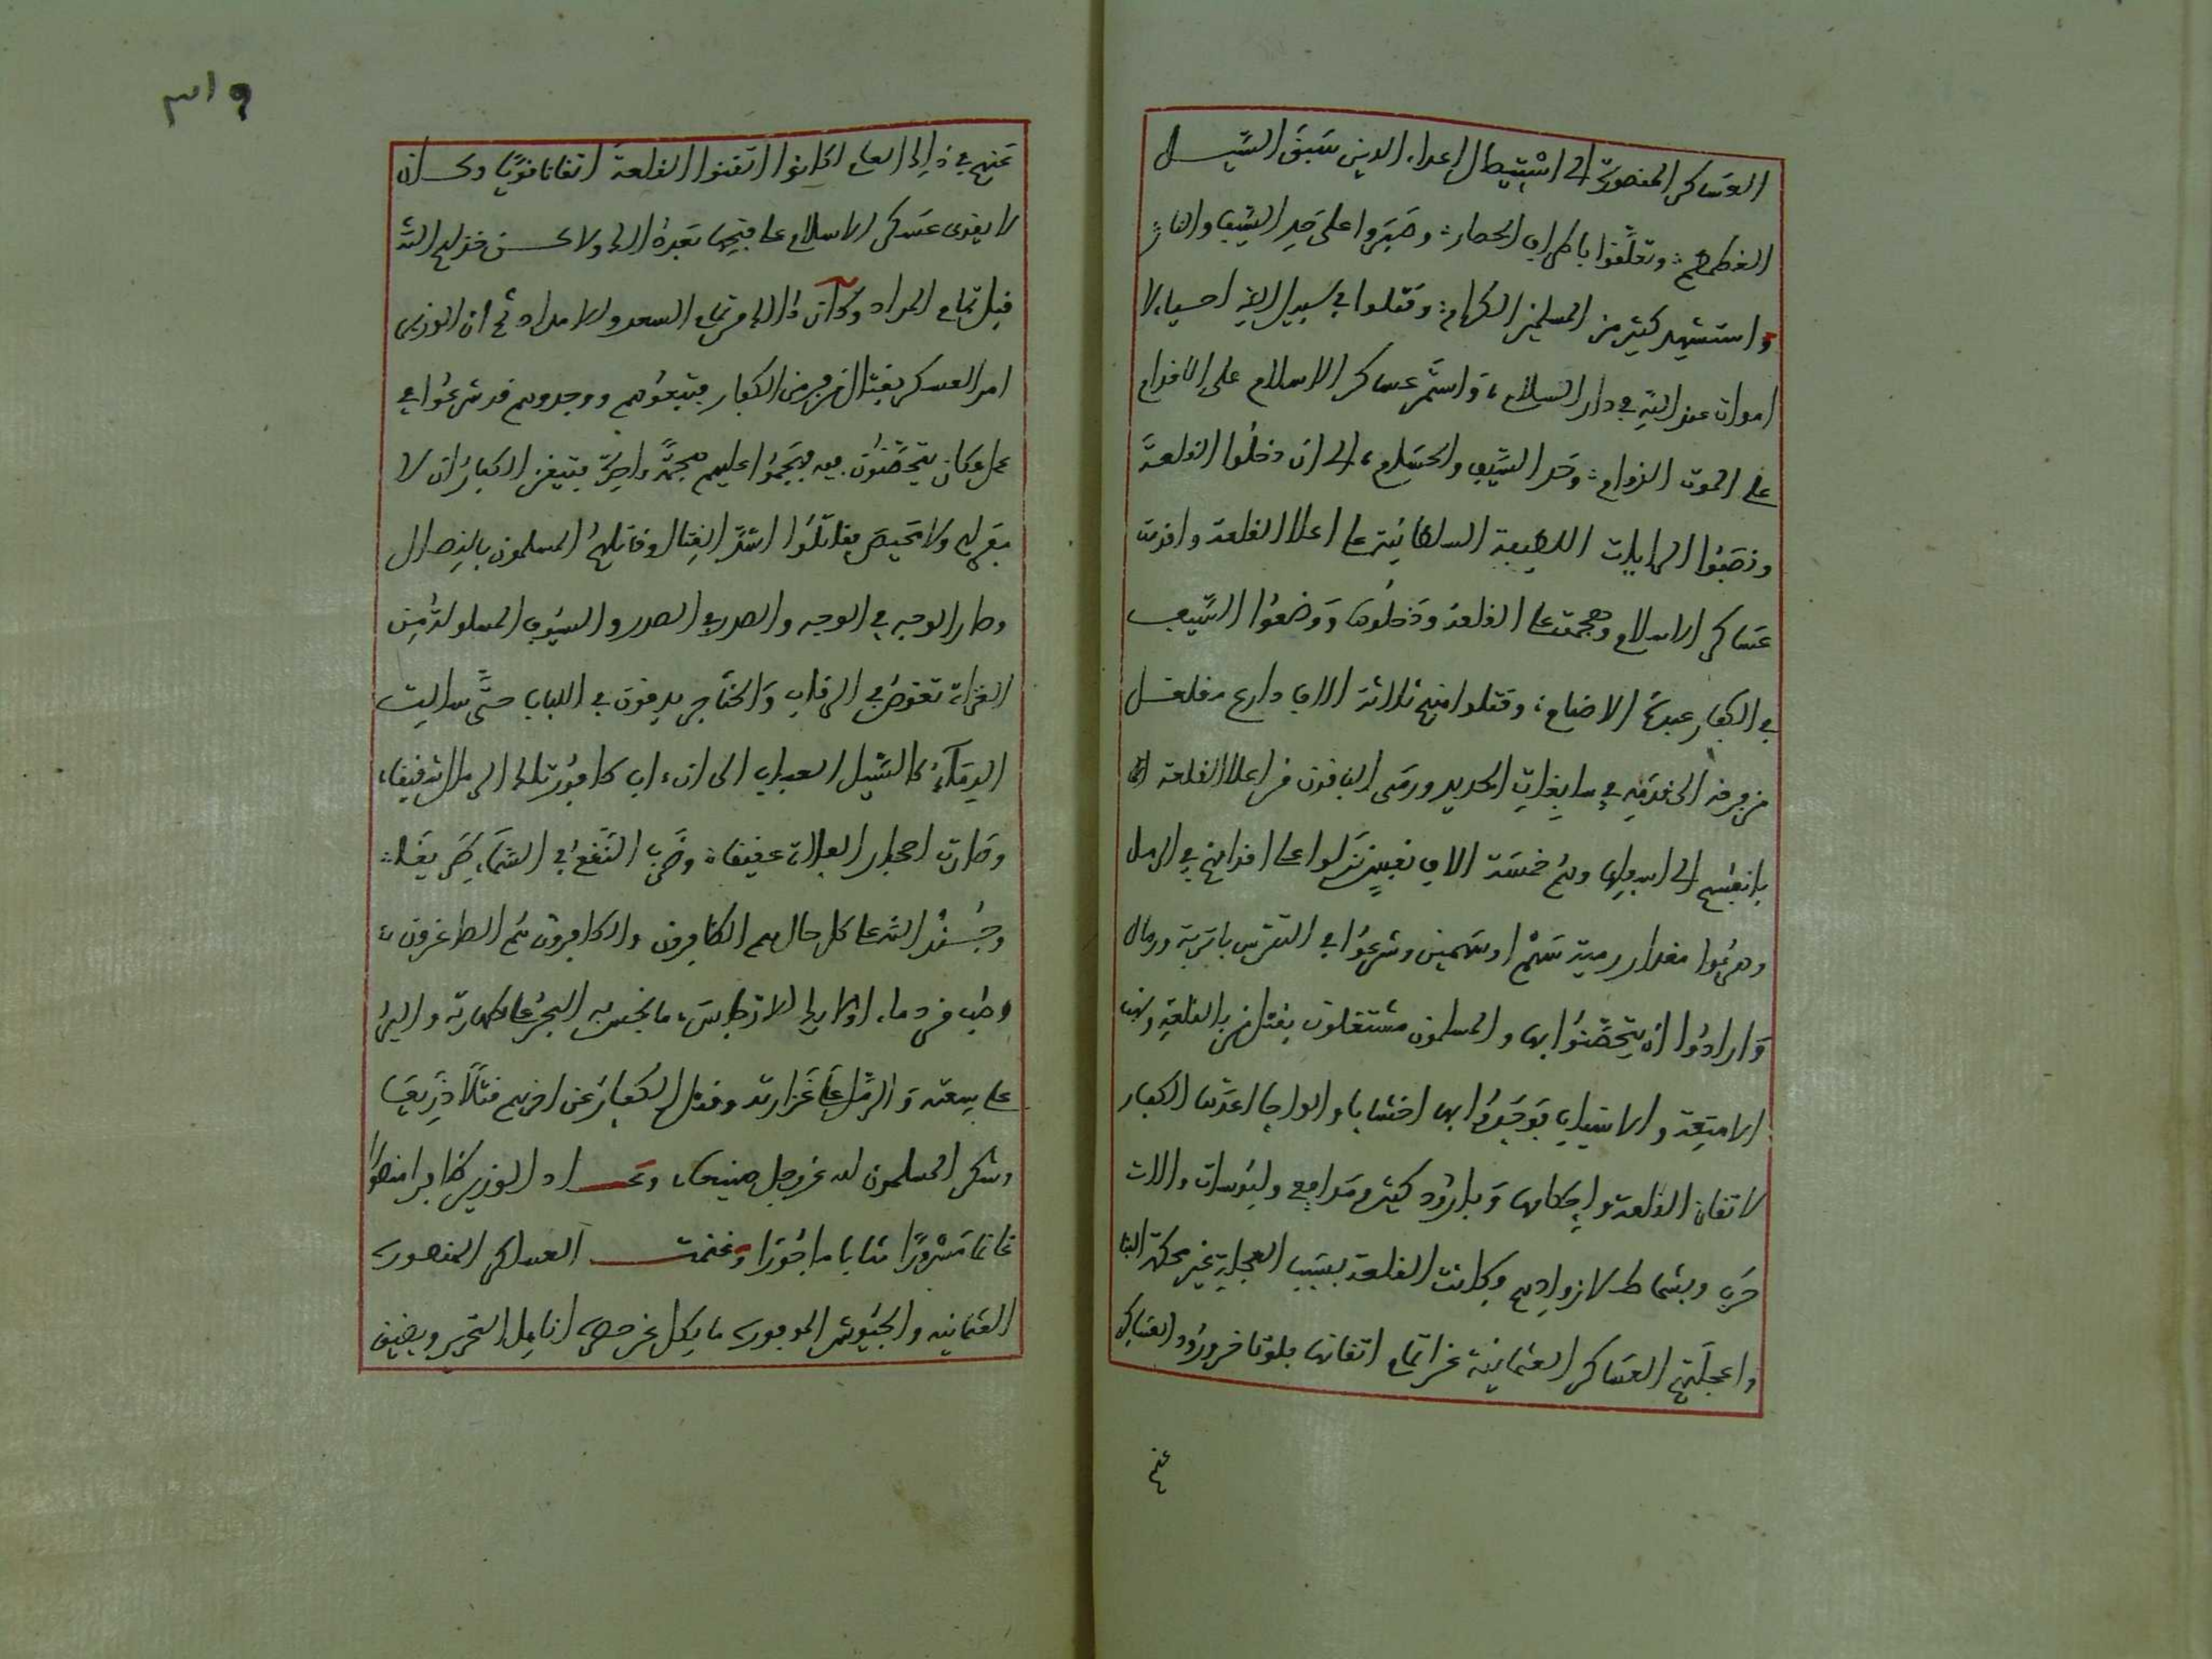 العساكر المنصورة الى استيطال اعداء الدين سبق السيل
الغطمطم؛ وتعلّقوا باطراف الحصار؛ وصَبَروا على حَدِ السَّيف والنارِ
واستشهد كثير من المسلمين الكرام؛ وقتلوا في سبيل الله احياء لا
اموات عند الله في دار السلام، وَاستمَّر عساكر الاسلام على الاقدام
على الموت الزوام؛ وحَد السَّيف والحسَام، الى ان دخلُوا القلعةَ
ونصَبُوا الرايات الشريفة السلطانيّة على اعلا القلعة وافرت
عساكر الاسلام وهجمت على القلعة ودَخلُوها وَوَضعُوا السَّيف
في الكفار عبدَة الاصنام؛ وقتلوا منهم ثلاثة الاف دارع مقلقل
من فرقه الى قدمِه في سابِغات الحديد ورمَى الباقون من اعلا القلعة
بانفسهم الى اسفلها وهُم خمسَة الاف نفسٍ نزلوا على اقدامهم في الرمل
وهرعُوا مقدار رمية سَهْم اوسَهمين وشرعوُا في التترس باتربة ورمال
وَارادُوا ان يتحَصَّنوُا بها والمسلمون مشتغلون بقتل من بالقلعةِ ونهب
الامتِعة والاسباب فوَجَدُوا بها اخشابا والواحا اعدّتها الكفار
لاتقان القلعة واحكامها وَبارُود كثير ومَدافع ولبُوسات والات
حَرب وبشماط لازوادهم وكانت القلعة بسَبب العجلة غير محكمة البنا
واعجلَتهم العساكر العثمانية عن اتمام اتقانها فلوتاخر ورُود العساكر
عنهم
٣١٩
عَنهم في ذلك العام لكانوا اتقنوا القلعة اتقانا قويًّا وكان
لا يقوى عَسكر الاسلام على فتحِها بَعدهُ الا ولاكن خذلهم الله
قبل تمام المراد وكان ذالك من تمام السعد والامداد ثم ان الوزير
امر العسكر بقتال من فر من الكفار فتبعوُهم ووجدوهم قد شرعُوا في
عمل مكان يتحَصَّنوُن فيه فهجَمُوا عليهم هجمَةً واحِدَة فتيقن الكفارُ ان لا
مفرلهم ولا مَحيص فقاتلُوا اشدَّ القِتال وقاتلهُم المسلمون بالنِصال
وصار الوجه في الوجه والصدر في الصدر والسيُوف المسلولة من
الغزاة تغوصُ في الرقاب وَالخناجر يدفون في اللباب حتَّى سالت
الدِمَآءُ كالسَّيل العباب الى ان عاد كافوُر تلك الرمال شقيقاء
وصَارت احجار الفلاة عقيقا؛ وضَرب النَقعُ في السَّماء طريقَا؛
وجُندُ الله على كل حال هم الظافرون والكافرون هُم الصاغرون؛
وطب من دماء اولئك الارجاسَ، ما نجسَ به البحرُ على طهارته والبرُ
على سِعته وَالرَمل على غَزارته وقتل الكفارُ عن اخرهم قتلًا ذَرِيعَا
وشكر المسلمون لله عز وجل صنيعا، وعَاد الوزير ظافرا منصُورًا
غانما مَسْرُورًا مثابا ماجُورَا وَغنمت العساكر المنصورة
العثمانيه والجيُوش الموفورة ما يكل عن حصره انامل التحرير ويضيق